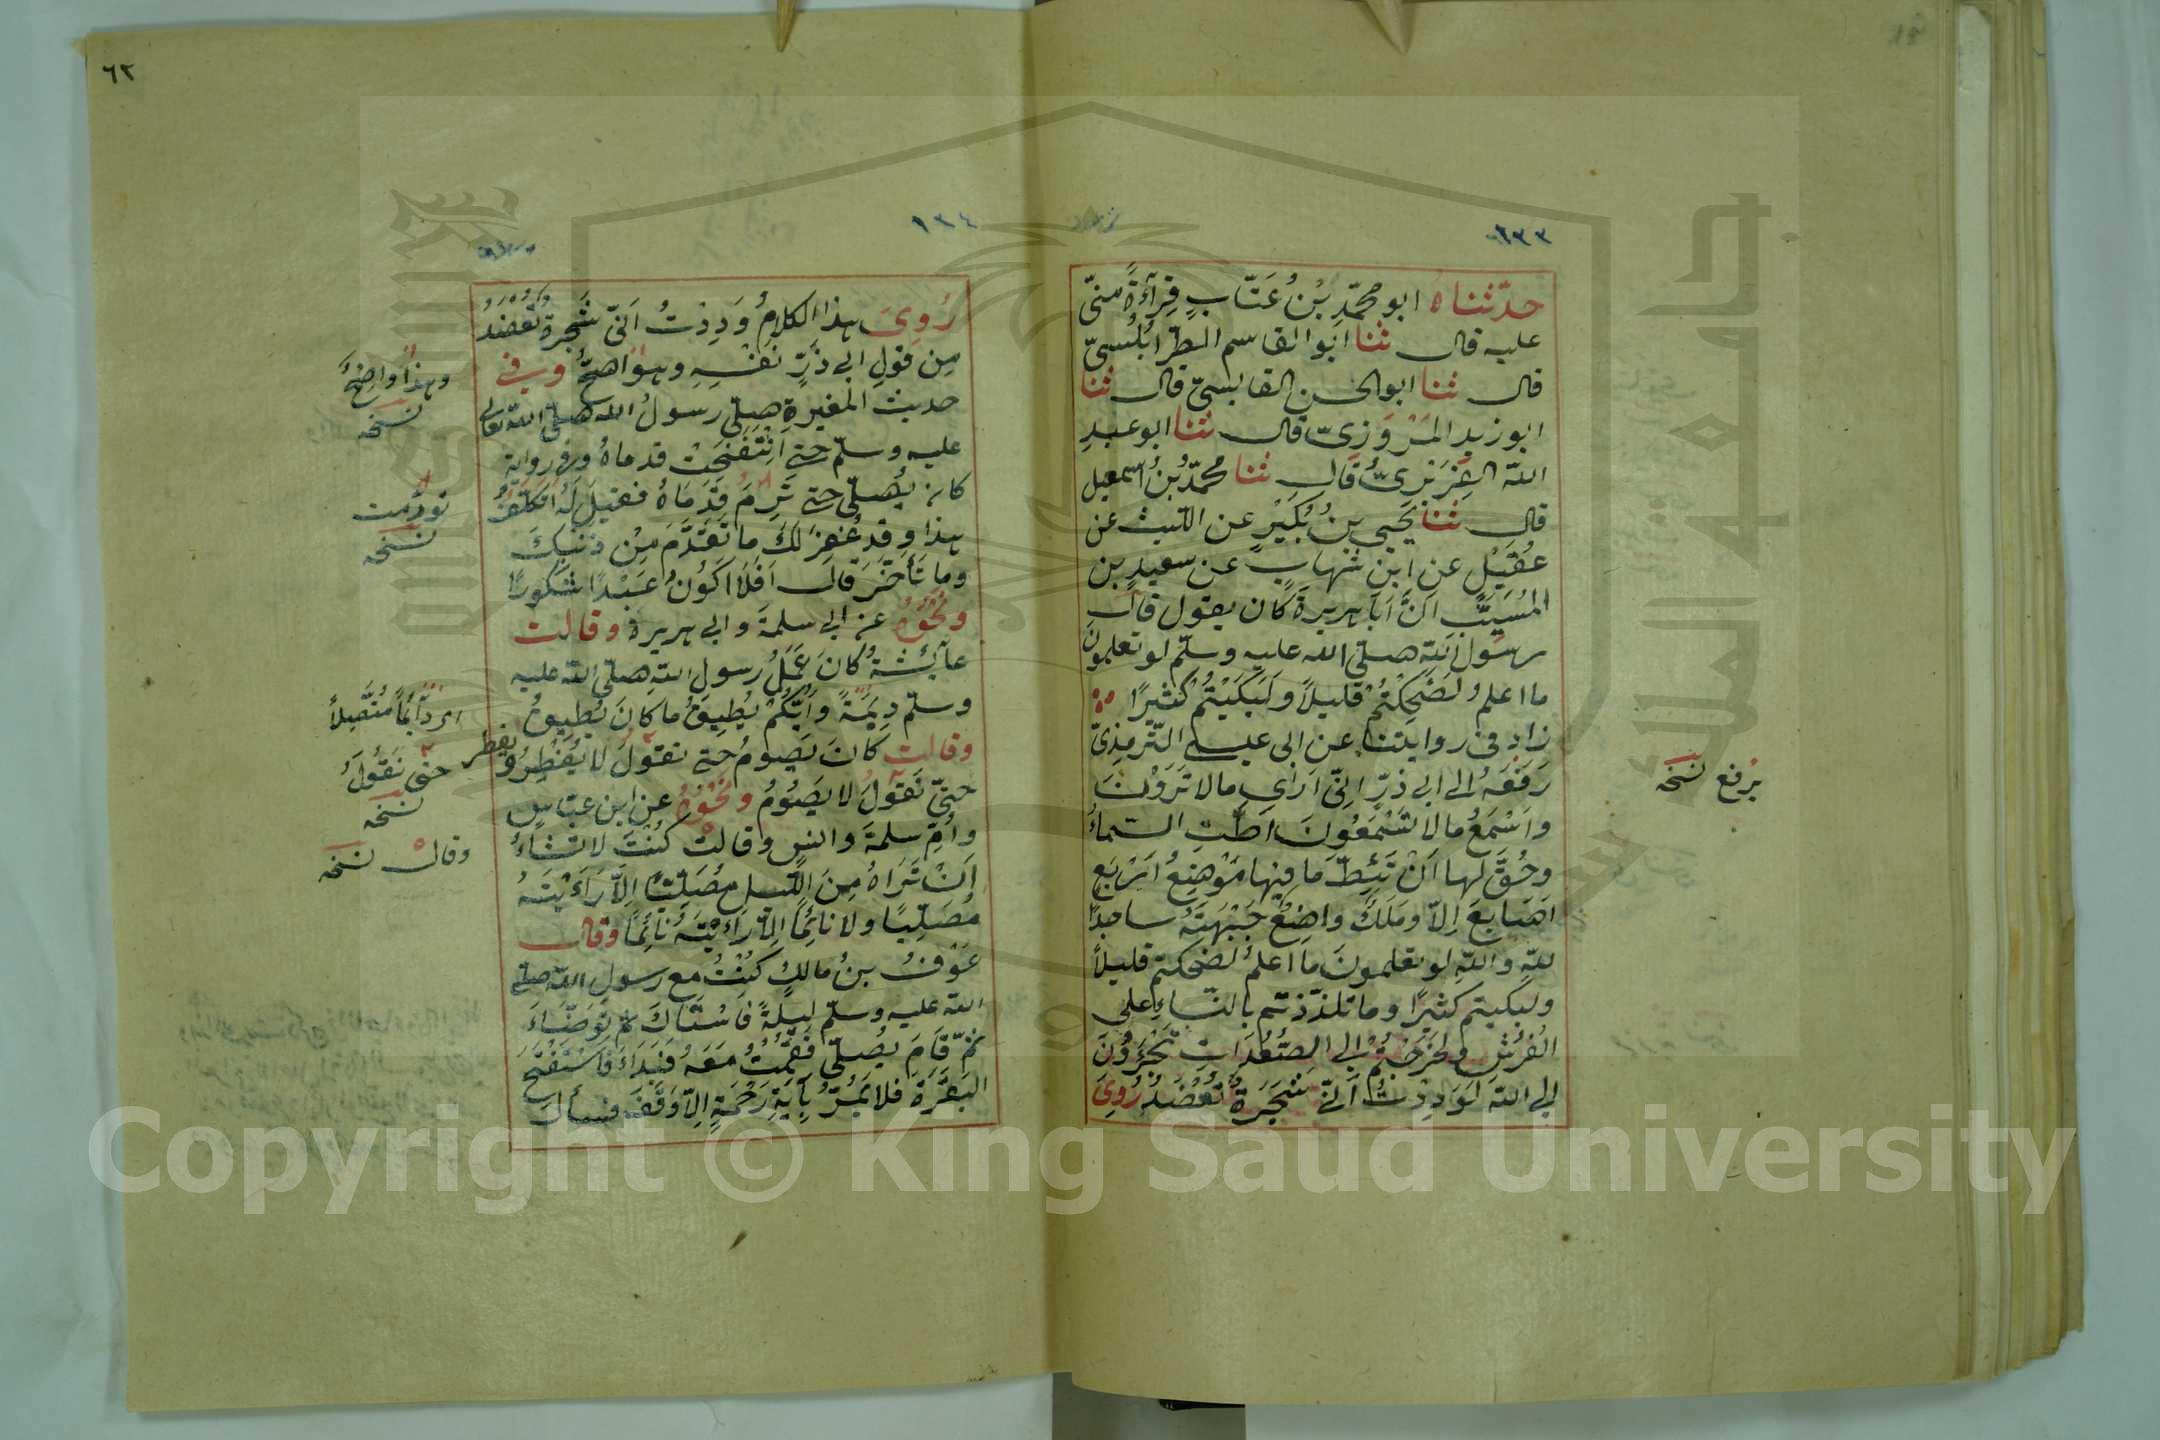 ١٣٣
حدّثناه ابو محمّدِ بْنُ عَتّابٍ قِرآءَةً مِنّي
عليه قال ثنا ابو القاسم الطرابُلُسيّ
قال ثنا ابو الحسن القابسيّ قال ثنا
ابو زيدِ المَرْوَزِيّ قال ثنا ابو عبدِ
اللّه الفِرَبْرِيُّ قال ثنا محمّدُ بْنُ اسمعيل
قال ثنا يَحيى بنُ بُكَيْرٍ عن اللّيث عن
عُقَيْلٍ عن ابن شهابٍ عن سعيدِ بن
المُسَيَّبِ اَنَّ اَبا هريرةَ كان يقول قال
رسول اللّه صلى الله عليه وسلّم لو تعلمون
ما اعلمُ لَضَحِكْتُمْ قليلاً ولَبَكَيْتُمْ كثيرًا
زاد في روايتنا عن ابى عيسى التّرمِذِيّ
رَفَعَهُ الى ابى ذرٍّ اِنّى اَرٰى مالا تَرَوْنَ
واَسْمَعُ مالا تَسْمَعُونَ اَطَّتِ السّماءُ
وحُقَّ لها اَنْ تَئِطَّ مَا فيها مَوْضِعُ اَرْبَعِ
اَصَابِعَ اِلاّ ومَلَكٌ واضِعٌ جَبْهَتَهُ ساجدًا
للّهِ واللّهِ لو تعلمونَ ما اعلمُ لضحكتم قليلاً
ولبكيتم كثيرًا وما تلذّذتم بالنّساءِ على
الفُرُشِ ولخَرَجْتُمْ الى الصُّعُدَاتِ تَجْئَرُونَ
الى اللّه لَوَدِدْتُ اَنّى شَجَرَةٌ تُعْضَدُ رُوِىَ
يرفع نسخه
٦٢
١٣٤
رُوِىَ هذا الكلامُ وَدِدْتُ اَنّى شَجرةٌ تُعْضَدُ
مِن قولِ ابى ذَرٍّ نَفْسِهِ وهوَ اصحُّ وفى
حديث المغيرةِ صلّى رسولُ الله صلّى اللّه تعالى
عليه وسلّم حتى انْتَفَخَتْ قدماهُ وفى روايةٍ
كان يُصلّى حتى تَرِمَ قَدَمَاهُ فقيلَ لَهُ اَتكَلّفُ
هذا وقد غُفِرَ لكَ ما تَقَدَّمَ مِنْ ذَنبِكَ
وما تَأَخَّرَ قال اَفَلا اَكُونُ عَبْدًا شَكورًا
ونَحْوُهُ عن ابى سلمةَ وابى هريرةَ وقالت
عآئشةُ كانَ عَمَلُ رسولِ اللّهِ صلّى اللّه عليه
وسلّم دِيمَةً وَاَيُّكُمْ يُطِيقُ ما كانَ يُطِيقُ
وقالت كانَ يَصومُ حتى نقولَ لا يُفْطِرُ ويفطر
حتىّ نَقولَ لا يَصُومُ ونَحْوُهُ عن ابن عبّاسٍ
واُمِّ سلمةَ وانسٍ وقالت كُنْتَ لا تشاءُ
اَنْ تَرَاهُ مِنَ اللّيل مُصَلّيًا اِلاّ رَاَيْتَهُ
مُصَلّيًا ولا نائِمًا اِلاّ رَاَيْتَهُ نَائِمًا وقال
عَوْفُ بنُ مالكٍ كُنْتُ مع رسولِ اللّه صلى
اللّه عليه وسلّم ليلةً فَاسْتاكَ ثم تَوَضَّاءَ
ثمّ قامَ يُصلّى فَقُمْتُ مَعَهُ فبَدَاءَ فَاسْتَفْتَحَ
البَقَرَةَ فلا يَمُرُّ بِآيَةِ رَحْمَةٍ اِلاّ وَقَفَ فسأل
وهذا واضِحٌ
نسخه
تورّمت
نسخه
اى دائمًا مُتَّصِلاً
حتى نَقُولَ
نسخه
وقال نسخه
Copyright © King Saud University